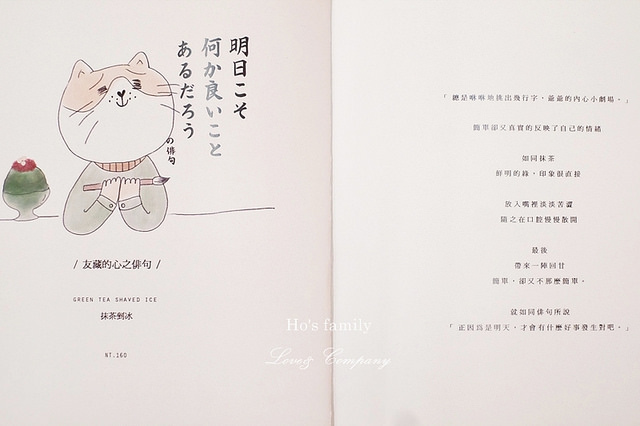 明日こそ
何か良いこと
あるだろう
の俳句
/ 友藏的心之俳句 /
GREEN TEA SHAVED ICE
抹茶剉冰
NT.160
簡單卻又真實的反映了自己的情緒
如同抹茶
鮮明的綠，印象很直接
放入嘴裡淡淡苦澀
隨之在口腔慢慢散開
最後
帶來一陣回甘
簡單，卻又不那麼簡單。
就如同俳句所說
「正因為是明天，才會有什麼好事發生對吧。」
Ho's family
Love & Company